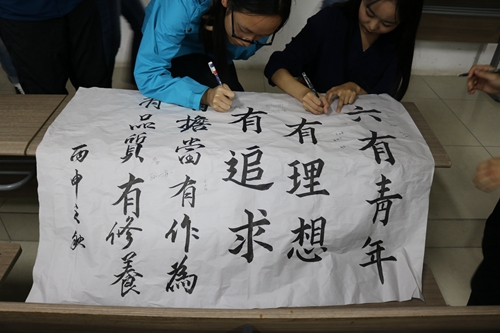 六有青年
有理想
有追求
有擔當有作為
有品質有修養
丙申之秋